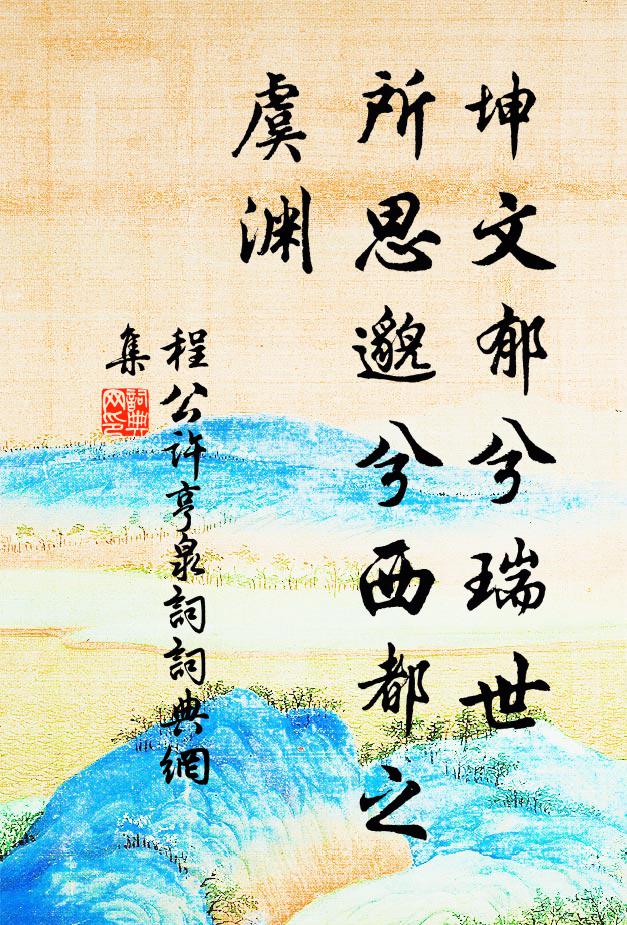 坤文郁兮瑞世
所思邈兮西都之
虞渊
程公许亨泉詞詞典網
集
詞典网印